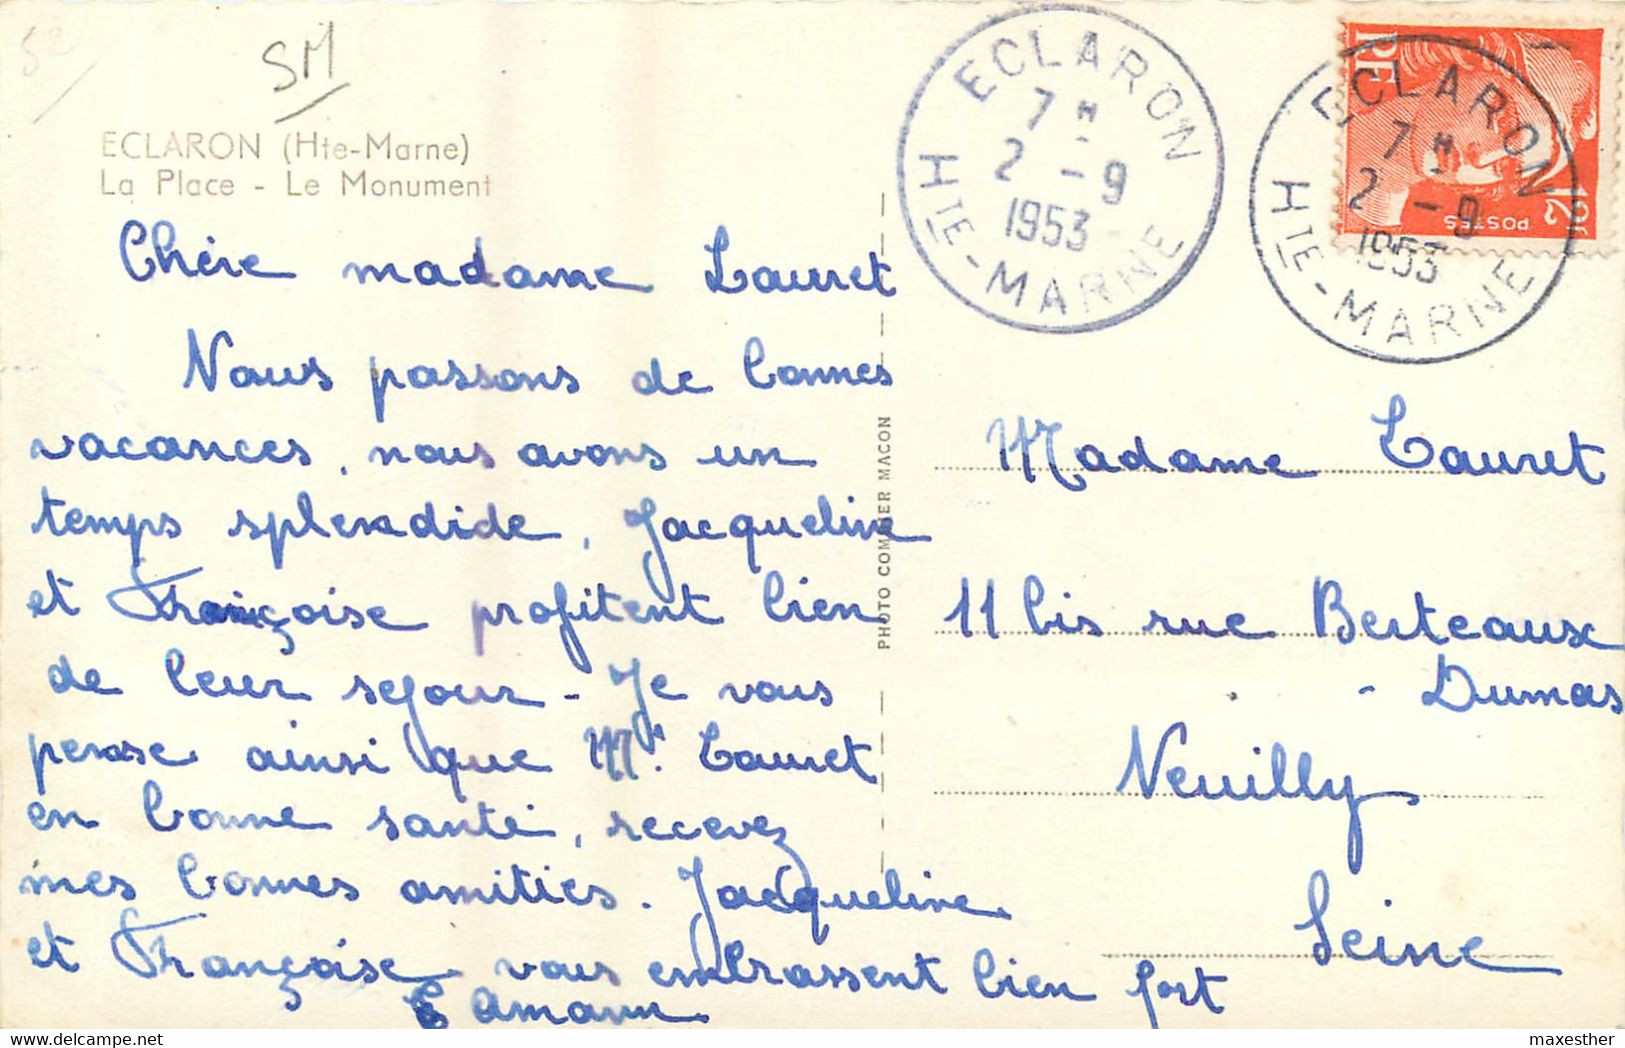 52
SM
ECLARON (Hte-Marne)
La Place - Le Monument
Chère madame Lauret
Nous passons de bonnes
vacances, nous avons un
temps splendide, Jacqueline
et Françoise profitent bien
de leur sejour - Je vous
pense ainsi que Mr. Lauret
en bonne santé, recevez
mes bonnes amitiés. Jacqueline
et Françoise vous embrassent bien fort
Amann
PHOTO COMBIER MACON
ECLARON
7 H
2 - 9
1953
HTE-MARNE
ECLARON
7 H
2 - 9
1953
HTE-MARNE
RF
POSTES
12F
Madame Lauret
11 bis rue Berteaux
- Dumas
Neuilly
Seine
maxesther